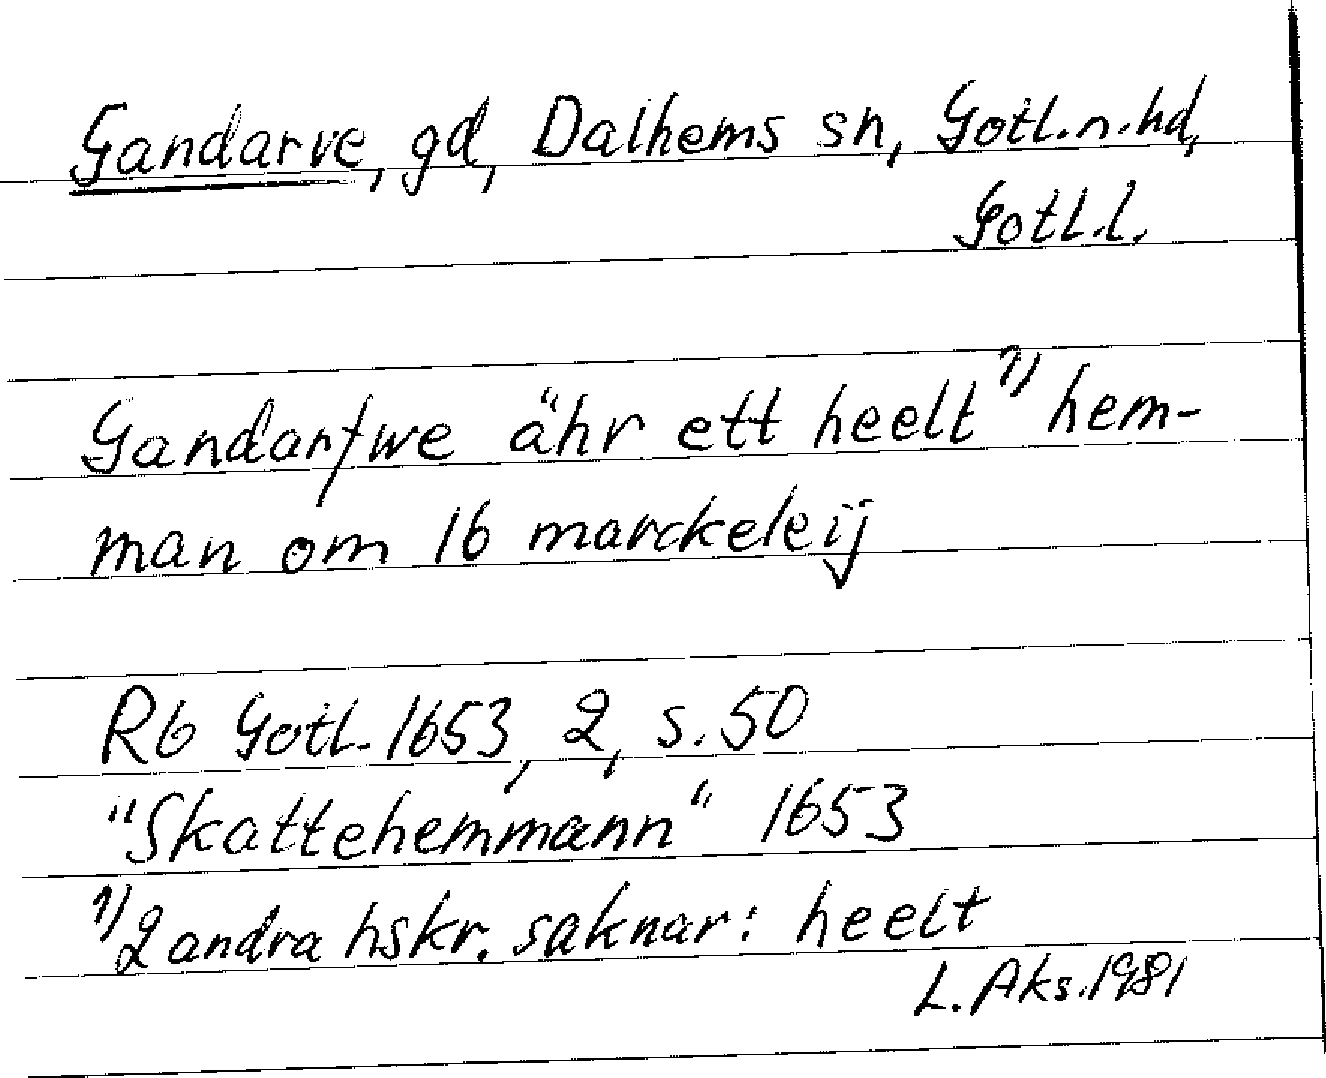 Gandarve, gd, Dalhems sn, Gotl.n.hd,
Gotl.l.
Gandarfwe ähr ett heelt 1) hem-
man om 16 marckeleij
Rb Gotl. 1653, 2, s. 50
"Skattehemmann" 1653
1) 2 andra hskr. saknar: heelt
L. Aks. 1981